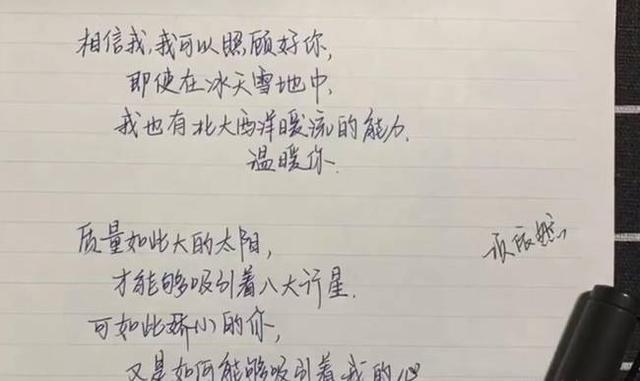 相信我,我可以照顾好你,
即使在冰天雪地中,
我也有北大西洋暖流的能力,
温暖你.
质量如此大的太阳,
才能够吸引着八大行星.
可如此娇小的你,
又是如何能够吸引着我的心